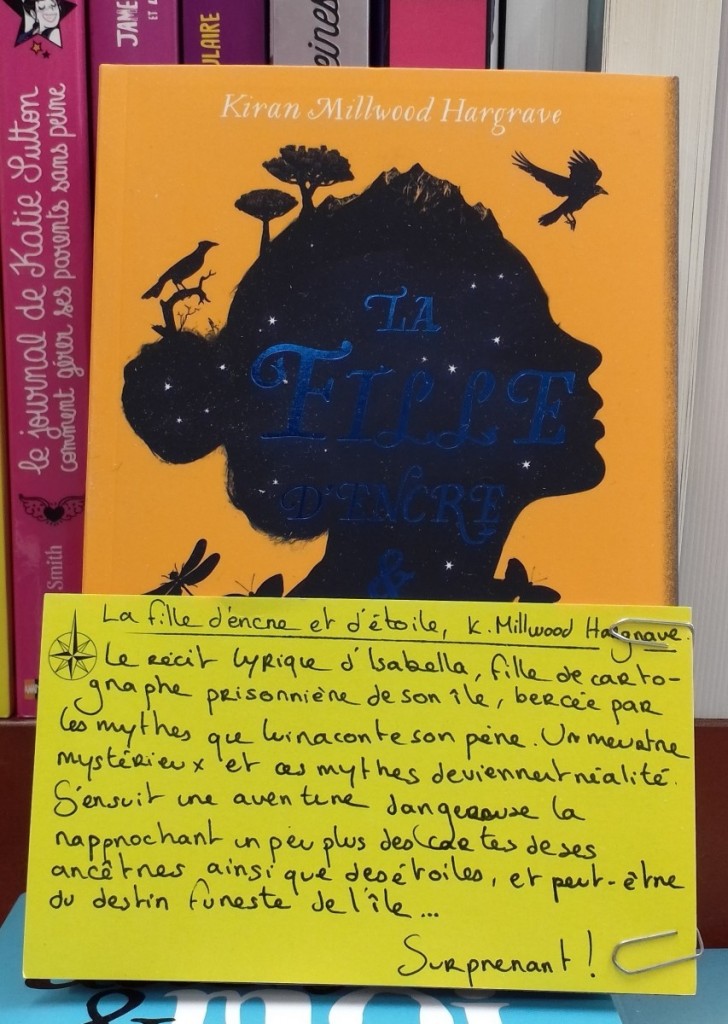 JAME
ET A
ULAIRE
eines
le journal de Katie Sutton
comment gérer ses parents sans peine
Smith
Kiran Millwood Hargrave
LA
FILLE
D'ENCRE
&
La fille d'encre et d'étoile, K. Millwood Hargrave.
Le récit lyrique d'Isabella, fille de carto-
graphe prisonnière de son île, bercée par
les mythes que lui raconte son père. Un meurtre
mystérieux et ces mythes deviennent réalité.
S'ensuit une aventure dangereuse la
rapprochant un peu plus des cartes de ses
ancêtres ainsi que des étoiles, et peut-être
du destin funeste de l'île...
Surprenant !
& moi